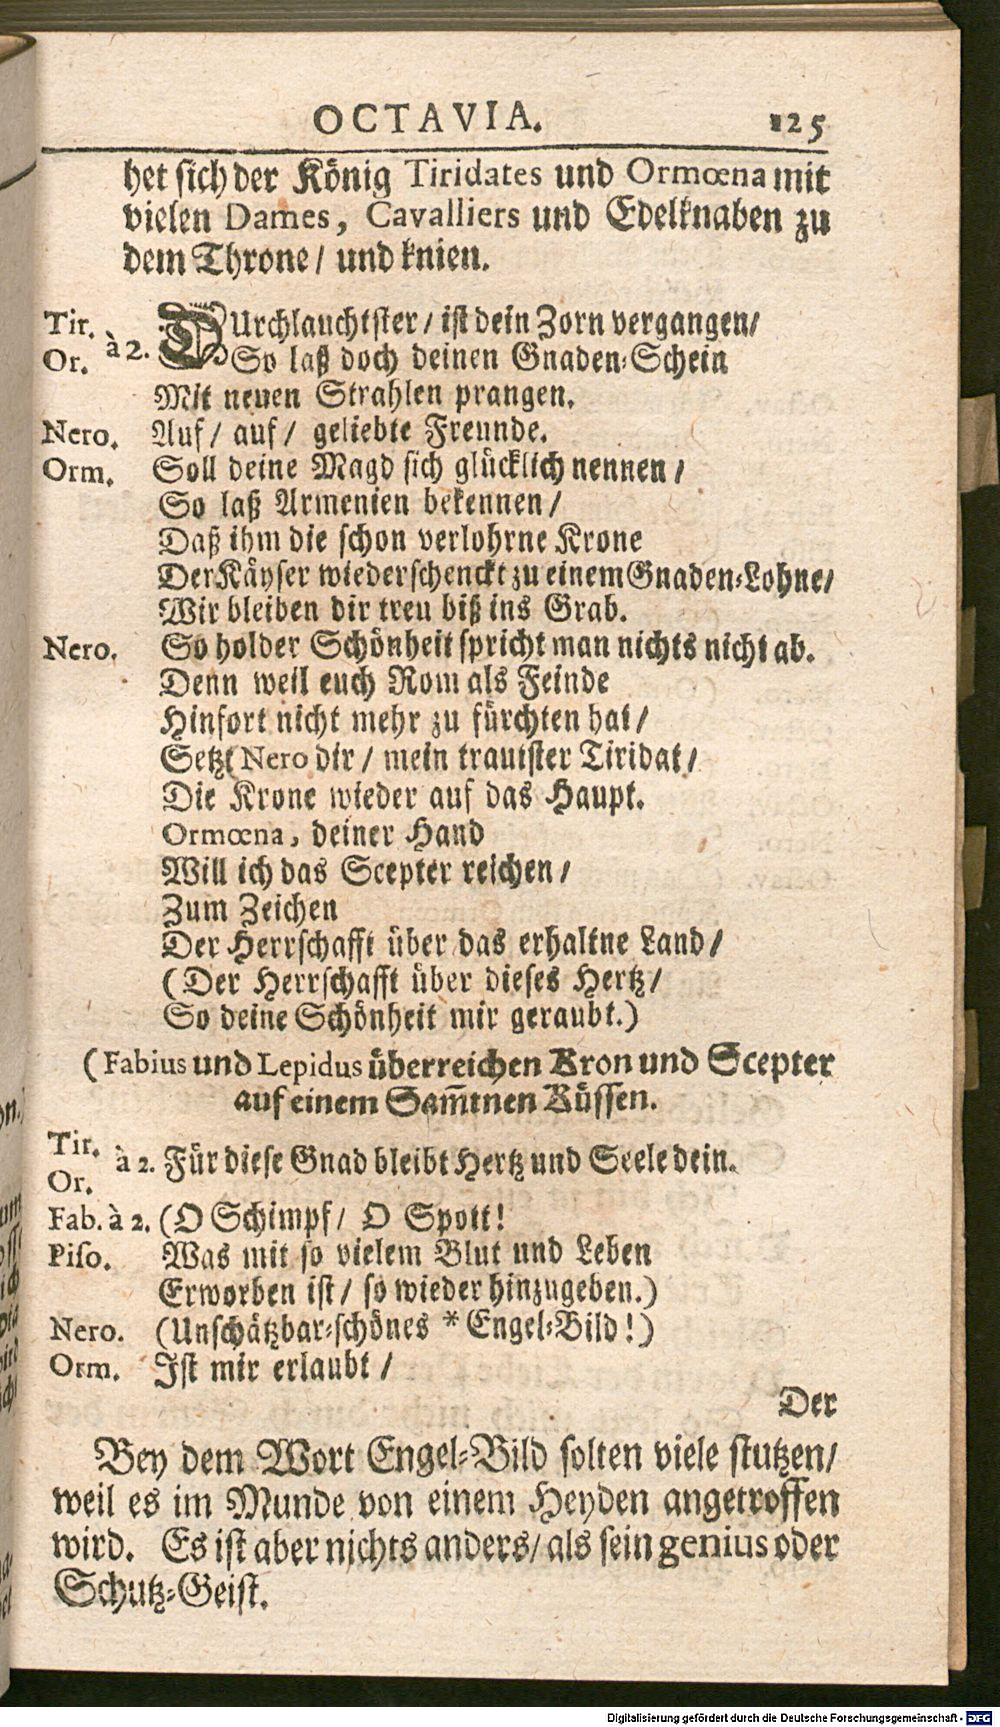 OCTAVIA. 125
het sich der König Tiridates und Ormœna mit
vielen Dames, Cavalliers und Edelknaben zu
dem Throne/ und knien.
Tir. Or. à 2. DUrchlauchtster/ ist dein Zorn vergangen/
So laß doch deinen Gnaden-Schein
Mit neuen Strahlen prangen.
Nero. Auf/ auf/ geliebte Freunde.
Orm. Soll deine Magd sich glücklich nennen/
So laß Armenien bekennen/
Daß ihm die schon verlohrne Krone
Der Käyser wiederschenckt zu einem Gnaden-Lohne/
Wir bleiben dir treu biß ins Grab.
Nero. So holder Schönheit spricht man nichts nicht ab.
Denn weil euch Rom als Feinde
Hinfort nicht mehr zu fürchten hat/
Setzt Nero dir/ mein trautster Tiridat/
Die Krone wieder auf das Haupt.
Ormœna, deiner Hand
Will ich das Scepter reichen/
Zum Zeichen
Der Herrschafft über das erhaltne Land/
(Der Herrschafft über dieses Hertz/
So deine Schönheit mir geraubt.)
(Fabius und Lepidus überreichen Kron und Scepter
auf einem Sam̃tnen Küssen.
Tir. Or. à 2. Für diese Gnad bleibt Hertz und Seele dein.
Fab. à 2. (O Schimpf/ O Spott!
Piso. Was mit so vielem Blut und Leben
Erworben ist/ so wieder hinzugeben.)
Nero. (Unschätzbar-schönes * Engel-Bild!)
Orm. Ist mir erlaubt/
Der
Bey dem Wort Engel-Bild solten viele stutzen/
weil es im Munde von einem Heyden angetroffen
wird. Es ist aber nichts anders/ als sein genius oder
Schutz-Geist.
Digitalisierung gefördert durch die Deutsche Forschungsgemeinschaft - DFG